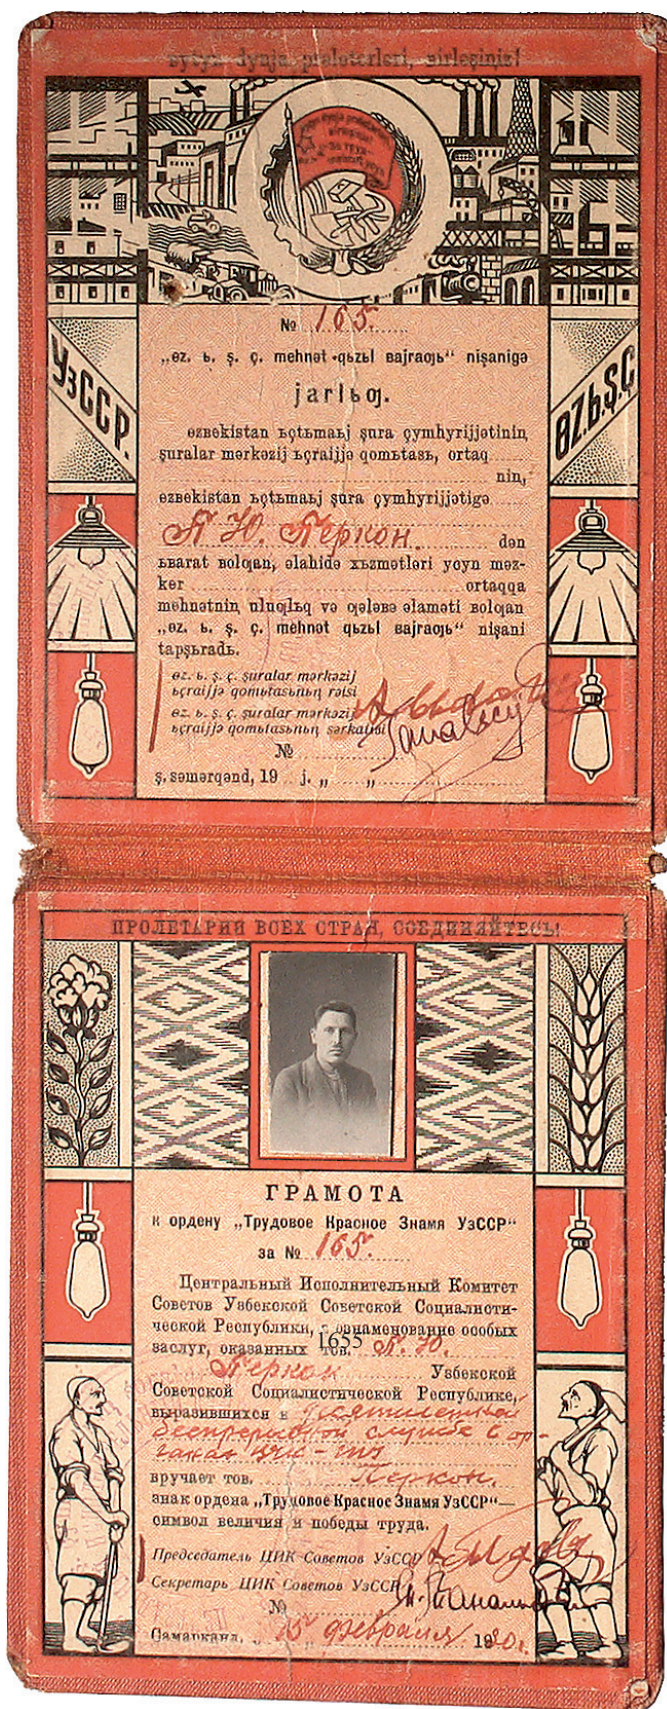 bytyn dynja proleterleri, birleşiniz!
УзССР.
ɵZ.Ь.Ş.Ç
№ 165.
„ɵz. ь. ş. ç. mehnət qьzьl bajraƣь“ nişanigə
jarlьƣ.
ɵzbekistan ьçtьmaьj şura çymhyrijjətinin,
şuralar mərkəzij ьçraijjə qomьtəsь, ortaq
nin,
ɵzbekistan ьçtьmaьj şura çymhyrijjətigə
П. Ю. Перкон. dən
ьbarat bolƣan, əlahidə xьzmətləri yçyn məz-
ker ortaqqa
mehnətnin, uluƣlьq və ƣələbə əlaməti bolƣan
„ɵz. ь. ş. ç. mehnət qьzьl bajraƣь“ nişani
tapşьradь.
ɵz. ь. ş. ç. şuralar mərkəzij
ьçraijjə qomьtasьnьn, rəisi
ɵz. ь. ş. ç. şuralar mərkəzij
ьçraijjə qomьtasьnьn, sərkatibi
№
ş. səmərqənd, 19 j. „ „
ПРОЛЕТАРИИ ВСЕХ СТРАН, СОЕДИНЯЙТЕСЬ!
ГРАМОТА
к ордену „Трудовое Красное Знамя УзССР“
за № 165.
Центральный Исполнительный Комитет
Советов Узбекской Советской Социалисти-
ческой Республики, в ознаменование особых
1655
заслуг, оказанных тов. П. Ю.
Перкон Узбекской
Советской Социалистической Республике,
выразившихся в десятилетней
беспрерывной службе в ор-
ганах ЧК-ГПУ
вручает тов. Перкон.
знак ордена „Трудовое Красное Знамя УзССР“—
символ величия и победы труда.
Председатель ЦИК Советов УзССР
Секретарь ЦИК Советов УзССР
№
Самарканд, „15„ февраля 1930г.